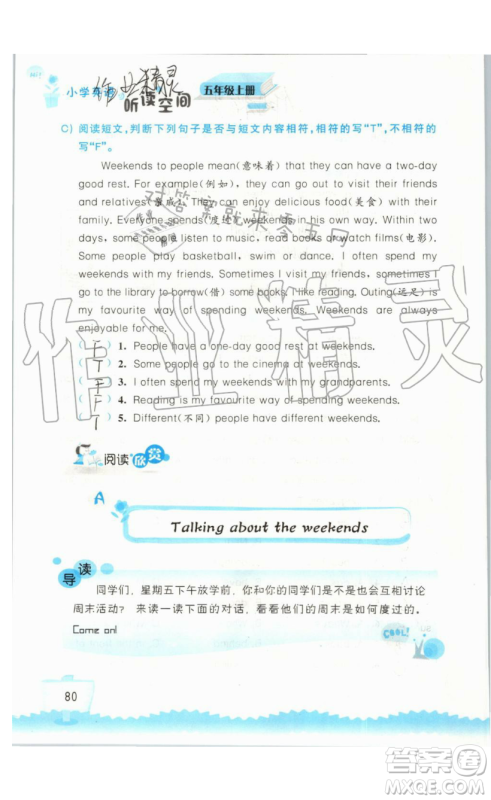 小学英语
作业精灵
听读空间
五年级上册
C) 阅读短文,判断下列句子是否与短文内容相符,相符的写"T",不相符的
写"F"。
Weekends to people mean(意味着)that they can have a two-day
good rest. For example(例如), they can visit their friends
and relatives(亲戚). They can enjoy delicious food(美食)with their
family. Everyone spends(度过)weekends in his own way. Within two
days, some people listen to music, read books or watch films(电影).
Some people play basketball, swim or dance. I often spend my
weekends with my friends. Sometimes I visit my friends, sometimes I
go to the library to borrow(借)some books. I like reading. Outing(远足)is
my favourite way of spending weekends. Weekends are always
enjoyable for me.
对答案就来零五网
作业精灵
( F ) 1. People have a one-day good rest at weekends.
( T ) 2. Some people go to the cinema at weekends.
( F ) 3. I often spend my weekends with my grandparents.
( F ) 4. Reading is my favourite way of spending weekends.
( T ) 5. Different(不同)people have different weekends.
阅读欣赏
A
Talking about the weekends
导读
同学们,星期五下午放学前,你和你的同学们是不是也会互相讨论
周末活动?来读一读下面的对话,看看他们的周末是如何度过的。
Come on!
COOL!
80
答案圈
MXQE.COM